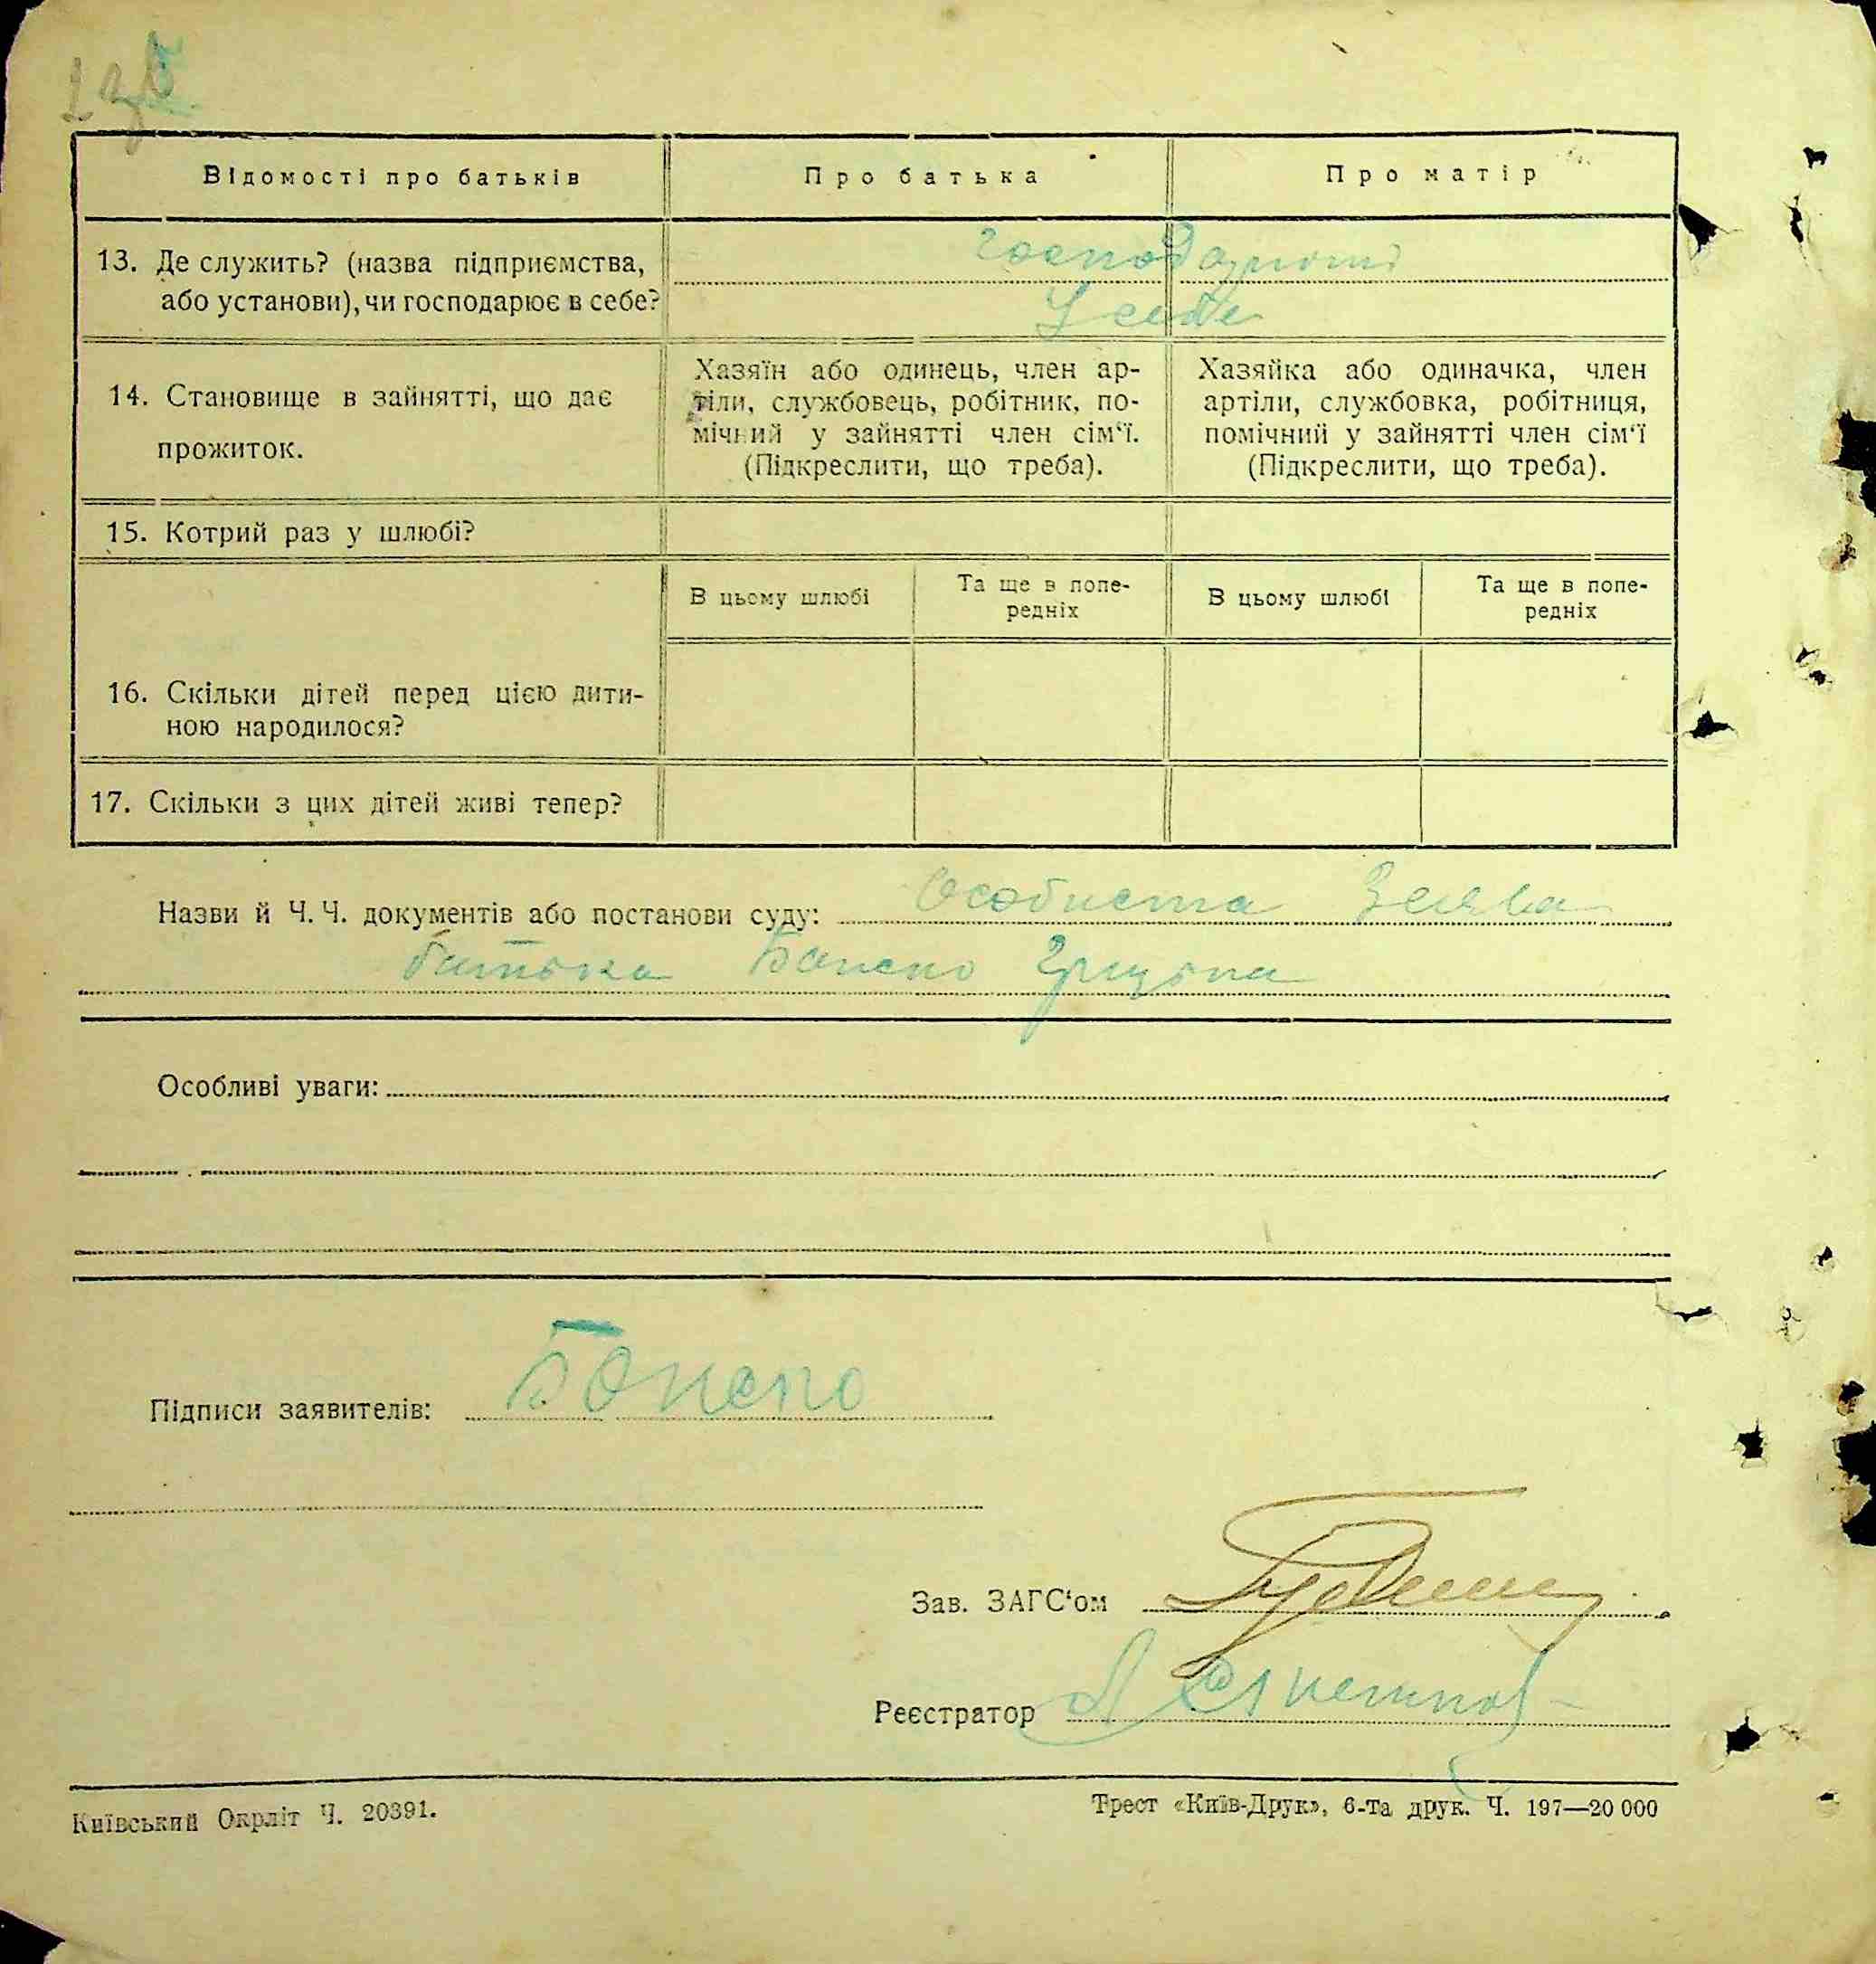 Відомості про батьків
Про батька
Про матір
13. Де служить? (назва підприємства,
або установи), чи господарює в себе?
У себе
14. Становище в зайнятті, що дає
прожиток.
Хазяїн або одинець, член ар-
тіли, службовець, робітник, по-
мічний у зайнятті член сім‘ї.
(Підкреслити, що треба).
Хазяйка або одиначка, член
артіли, службовка, робітниця,
помічний у зайнятті член сім‘ї
(Підкреслити, що треба).
15. Котрий раз у шлюбі?
В цьому шлюбі
Та ще в попе-
редніх
В цьому шлюбі
Та ще в попе-
редніх
16. Скільки дітей перед цією дити-
ною народилося?
17. Скільки з цих дітей живі тепер?
Назви й Ч. Ч. документів або постанови суду: Особиста Заява
батька Грицька
Особливі уваги:
Підписи заявителів:
Зав. ЗАГС‘ом
Реєстратор
Київський Окрліт Ч. 20391.
Трест «Київ-Друк», 6-та друк. Ч. 197—20 000